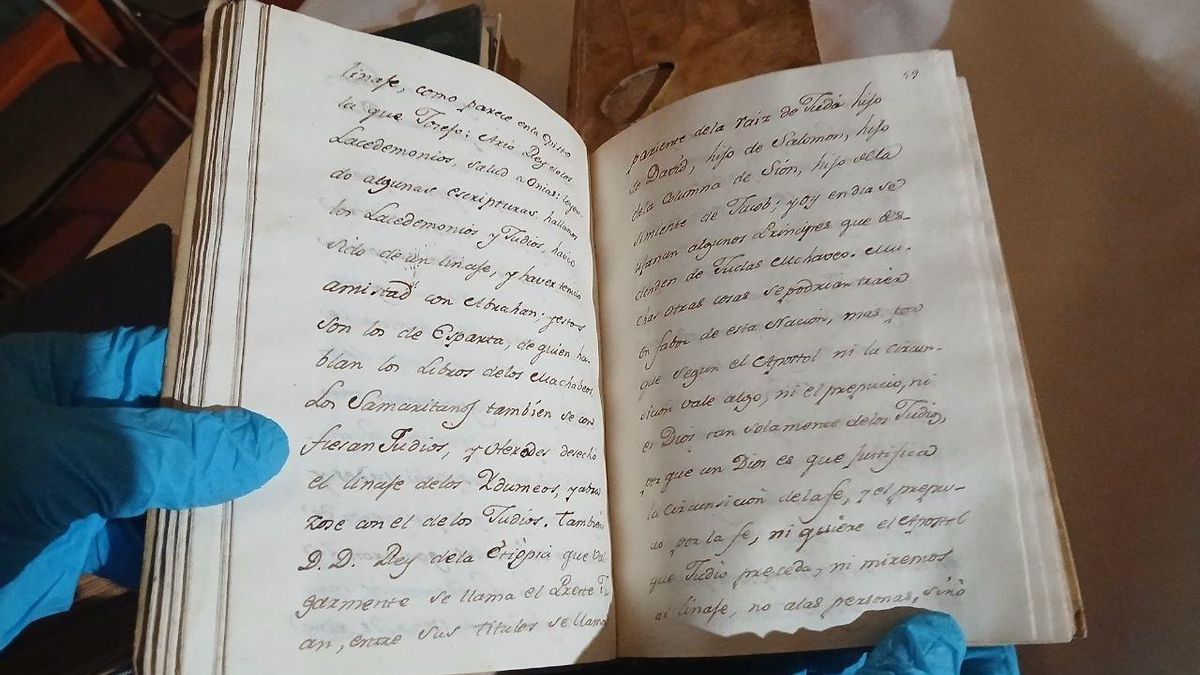 linaje, como parece en la Epistola
la que Josefo: Ario Rey de los
Lacedemonios, salud a Onias: leyen-
do algunas escripturas, hallamos
los Lacedemonios y Judios, haver
sido de un linaje, y haver tenido
amistad con Abrahan; y estos
son los de Esparta, de quién ha-
blan los Libros de los Machabeos,
Los Samaritanos también se con
fiesan Judios, y Herodes desechó
el linaje de los Ydumeos, y abra
zose con el de los Judios. También
D. D. Rey de la Etiopia que vul
garmente se llama el Preste Ju
an, entre sus titulos se llama
59
pariente de la raiz de Judá hijo
de David, hijo de Salomon, hijo
de la Columna de Sión, hijo de la
simiente de Jacob; y oy en dia se
ufanan algunos Principes que des-
cienden de Judas Machaveo. Mu-
chas otras cosas se podrian traer
en fabor de esta Nación, mas por
que segun el Apostol ni la circun-
sicion vale algo, ni el prepucio, ni
es Dios tan solamente de los Judios,
por que un Dios es que justifica
la circunsición de la fe, y el prepu-
cio por la fe, ni quiére el Apostol
que Judio preceda, ni miremos
al linaje, no a las personas, sinó